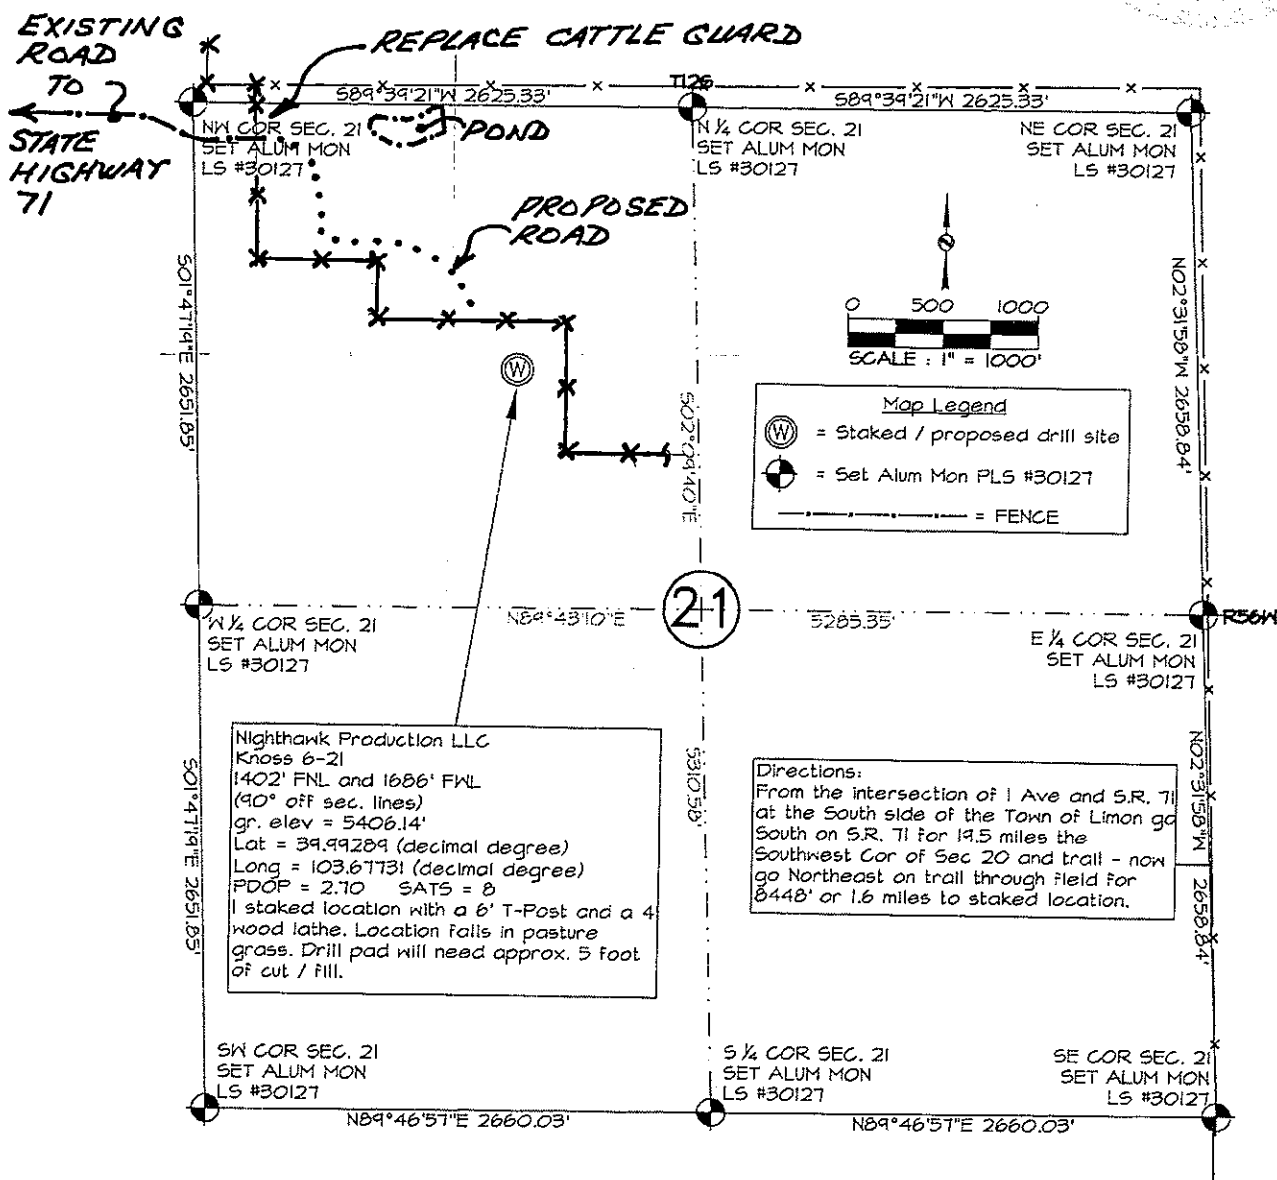 EXISTING
ROAD
TO
STATE
HIGHWAY
71
REPLACE CATTLE GUARD
S89°39'21"W 2625.33'
T12S
S89°39'21"W 2625.33'
NW COR SEC. 21
SET ALUM MON
LS #30127
POND
N ¼ COR SEC. 21
SET ALUM MON
LS #30127
NE COR SEC. 21
SET ALUM MON
LS #30127
PROPOSED
ROAD
S01°47'19"E 2651.85'
N02°31'58"W 2658.84'
0 500 1000
SCALE : 1" = 1000'
W
S02°04'40"E
Map Legend
W = Staked / proposed drill site
= Set Alum Mon PLS #30127
= FENCE
21
N89°43'10"E
5285.35'
R56W
W ¼ COR SEC. 21
SET ALUM MON
LS #30127
E ¼ COR SEC. 21
SET ALUM MON
LS #30127
Nighthawk Production LLC
Knoss 6-21
1402' FNL and 1686' FWL
(90° off sec. lines)
gr. elev = 5406.14'
Lat = 39.99289 (decimal degree)
Long = 103.67731 (decimal degree)
PDOP = 2.70 SATS = 8
I staked location with a 6' T-Post and a 4
wood lathe. Location falls in pasture
grass. Drill pad will need approx. 5 foot
of cut / fill.
S01°47'19"E 2651.85'
5310.58'
Directions:
From the intersection of 1 Ave and S.R. 71
at the South side of the Town of Limon go
South on S.R. 71 for 19.5 miles the
Southwest Cor of Sec 20 and trail - now
go Northeast on trail through field for
8448' or 1.6 miles to staked location.
N02°31'58"W 2658.84'
SW COR SEC. 21
SET ALUM MON
LS #30127
S ¼ COR SEC. 21
SET ALUM MON
LS #30127
SE COR SEC. 21
SET ALUM MON
LS #30127
N89°46'57"E 2660.03'
N89°46'57"E 2660.03'